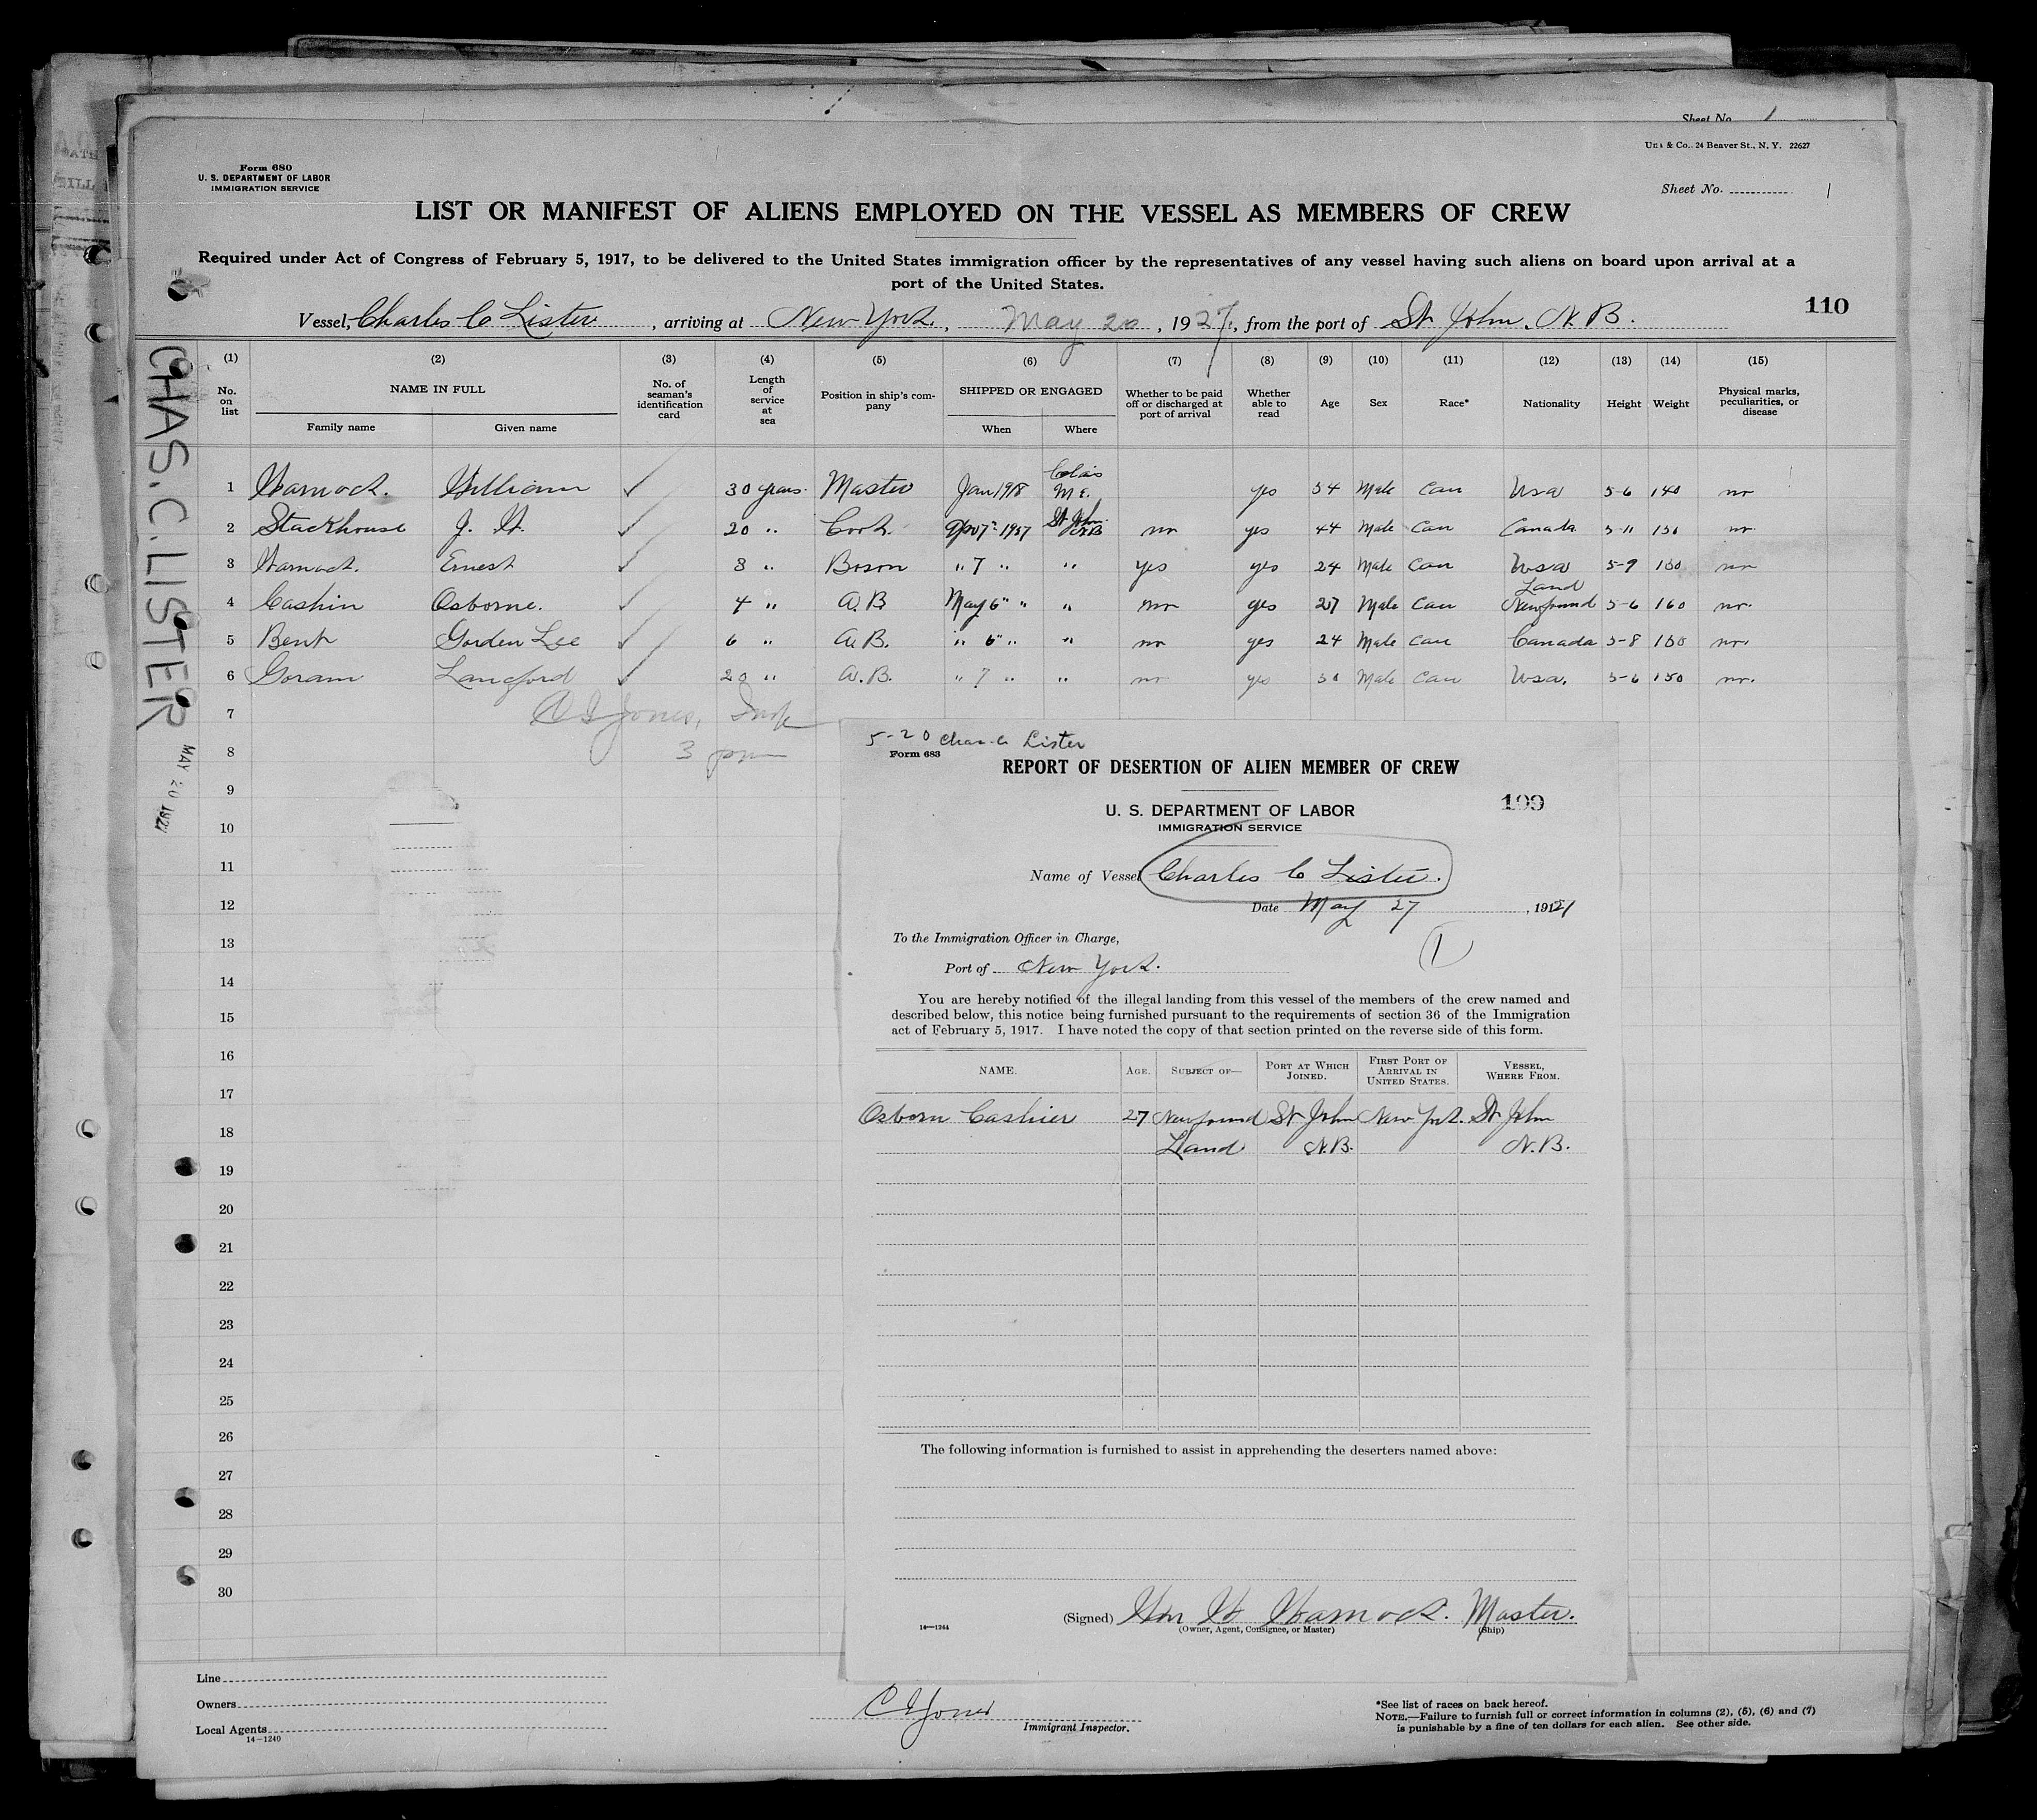 Sheet No. 1
Form 680
U. S. DEPARTMENT OF LABOR
IMMIGRATION SERVICE
& Co., 24 Beaver St., N. Y. 22627
Sheet No. 1
LIST OR MANIFEST OF ALIENS EMPLOYED ON THE VESSEL AS MEMBERS OF CREW
Required under Act of Congress of February 5, 1917, to be delivered to the United States immigration officer by the representatives of any vessel having such aliens on board upon arrival at a
port of the United States.
110
Vessel, Charles C Lister, arriving at New York, May 20, 1927, from the port of St John, N. B.
CHAS. C. LISTER
MAY 20 1927
(1) (2) (3) (4) (5) (6) (7) (8) (9) (10) (11) (12) (13) (14) (15)
No. on list NAME IN FULL Family name Given name No. of seaman's identification card Length of service at sea Position in ship's company SHIPPED OR ENGAGED When Where Whether to be paid off or discharged at port of arrival Whether able to read Age Sex Race* Nationality Height Weight Physical marks, peculiarities, or disease
1 Warnock. William ✓ 30 years. Master Jan 1918 Calais M E. yes 54 Male Can Usa 5-6 140 no
2 Stackhouse J. W. ✓ 20 " Cook. Apr 7" 1927 St John NB no yes 44 Male Can Canada 5-11 no
3 Warnock. Ernest ✓ 8 " Boson " 7 " " yes yes 24 Male Can Usa 5-9 no
4 Cashin Osborne. ✓ 4 " A. B May 6" " " no yes 27 Male Can Newfound Land 5-6 160 no.
5 Bent Gorden Lee ✓ 6 " A. B. " 6" " " no yes 24 Male Can Canada 5-8 no.
6 Goram Langford ✓ 20 " A. B. " 7 " " no yes Male Can Usa. 5-6 150 no.
7
Jones, Insp
8
3 pm
9
10
11
12
13
14
15
16
17
18
19
20
21
22
23
24
25
26
27
28
29
30
5-20 Chas. C Lister
Form 683
REPORT OF DESERTION OF ALIEN MEMBER OF CREW
U. S. DEPARTMENT OF LABOR
109
IMMIGRATION SERVICE
Name of Vessel Charles C Lister.
Date May 27, 1927
1
To the Immigration Officer in Charge,
Port of New York.
You are hereby notified of the illegal landing from this vessel of the members of the crew named and
described below, this notice being furnished pursuant to the requirements of section 36 of the Immigration
act of February 5, 1917. I have noted the copy of that section printed on the reverse side of this form.
NAME. AGE. SUBJECT OF— PORT AT WHICH JOINED. FIRST PORT OF ARRIVAL IN UNITED STATES. VESSEL, WHERE FROM.
Osborn Cashier 27 Newfound St John New York. St John
Land N.B. N.B.
The following information is furnished to assist in apprehending the deserters named above:
(Signed) Wm W Warnock. Master.
(Owner, Agent, Consignee, or Master) (Ship)
14—1244
Line
Owners
Local Agents
14—1240
Jones
Immigrant Inspector.
*See list of races on back hereof.
NOTE.—Failure to furnish full or correct information in columns (2), (5), (6) and (7)
is punishable by a fine of ten dollars for each alien. See other side.